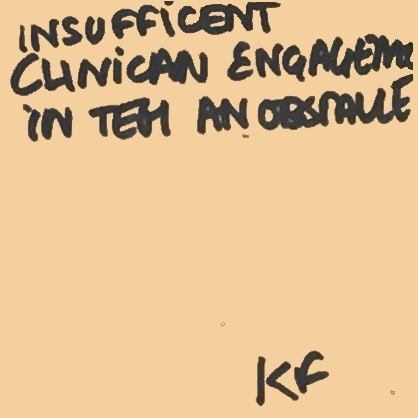 INSUFFICENT
CLINICAN ENGAGEME
IN TEH AN OBSTACLE
KF